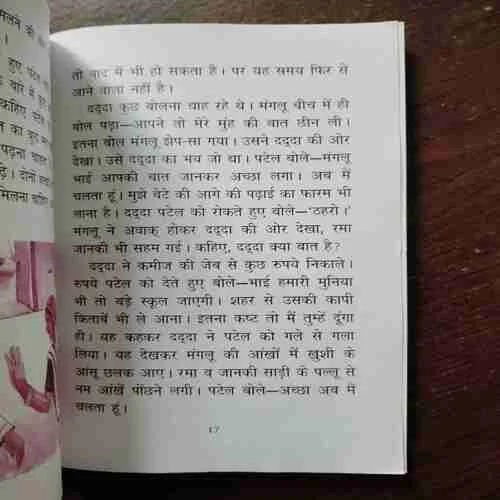 मिलने की
हुए पटेल
तो बाद में भी हो सकता है। पर यह समय फिर से
आने वाला नहीं है।
दद्दा कुछ बोलना चाह रहे थे। मंगलू बीच में ही
बोल पड़ा—आपने तो मेरे मुंह की बात छीन ली।
इतना बोल मंगलू झेप-सा गया। उसने दद्दा की ओर
देखा। उसे दद्दा का भय जो था। पटेल बोले—मंगलू
भाई आपकी बात जानकर अच्छा लगा। अब में
चलता हूं। मुझे बेटे की आगे की पढ़ाई का फारम भी
लाना है। दद्दा पटेल को रोकते हुए बोले—'ठहरो।'
मंगलू ने अवाक् होकर दद्दा की ओर देखा, रमा
जानकी भी सहम गई। कहिए, दद्दा क्या बात है?
दद्दा ने कमीज की जेब से कुछ रुपये निकाले।
रुपये पटेल को देते हुए बोले—भाई हमारी मुनिया
भी तो बड़े स्कूल जाएगी। शहर से उसकी कापी
किताबें भी ले आना। इतना कष्ट तो में तुम्हें दूंगा
ही। यह कहकर दद्दा ने पटेल को गले से गला
लिया। यह देखकर मंगलू की आंखों में खुशी के
आंसू छलक आए। रमा व जानकी साड़ी के पल्लू से
नम आंखें पोंछने लगी। पटेल बोले—अच्छा अब में
चलता हूं।
17